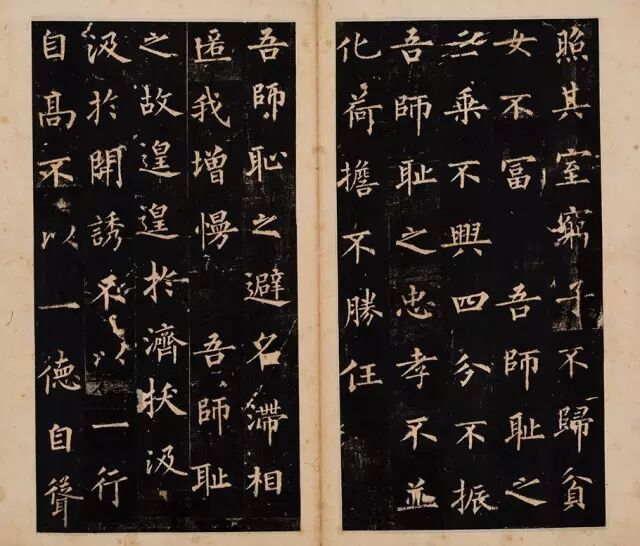 照其室窮子不歸貧
女不冨 吾師耻之
三乗不興四分不振
吾師耻之忠孝不並
化荷擔不勝任
吾師恥之避名滯相
匿我增慢 吾師耻
之故遑遑扵濟拔汲
汲扵開誘不以一行
自髙不以一德自聳